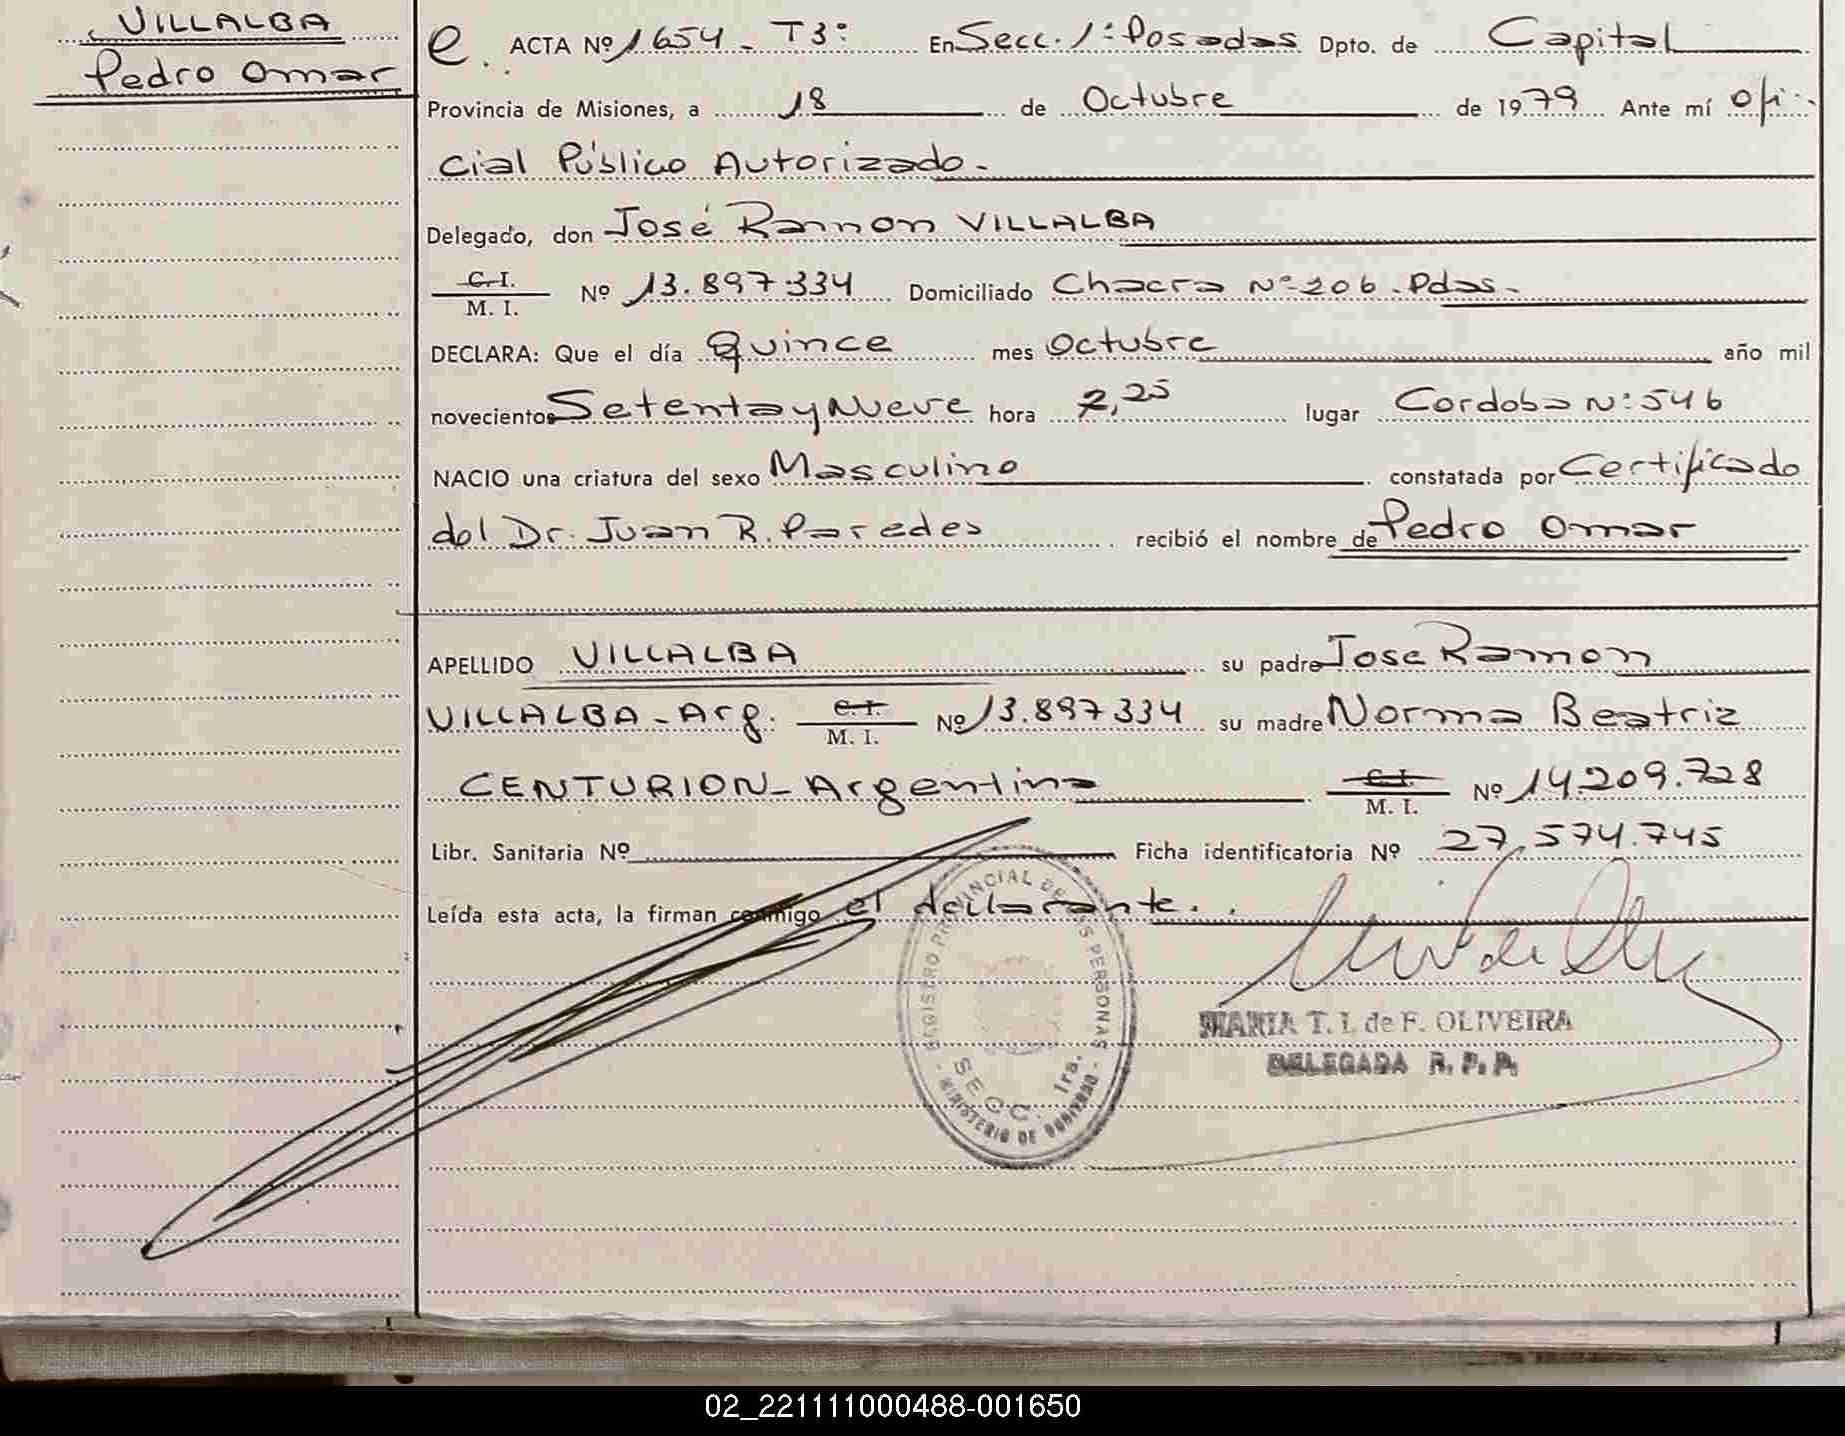 VILLALBA
Pedro Omar
e. ACTA Nº 1654 - T3º En Secc. 1º Posadas Dpto. de Capital
Provincia de Misiones, a 18 de Octubre de 1979 Ante mí ofi-
cial Público Autorizado.-
Delegado, don José Ramon VILLALBA
C.I.
M. I. Nº 13.897.334 Domiciliado Chacra Nº 206. Pdas.-
DECLARA: Que el día Quince mes Octubre año mil
novecientos Setenta y Nueve hora 2,25 lugar Cordoba Nº: 546
NACIO una criatura del sexo Masculino constatada por Certificado
del Dr. Juan R. Paredes recibió el nombre de Pedro Omar
APELLIDO VILLALBA su padre Jose Ramon
VILLALBA - Arg. C.I. M. I. Nº 13.897.334 su madre Norma Beatriz
CENTURION - Argentina C.I. M. I. Nº 14.209.728
Libr. Sanitaria Nº Ficha identificatoria Nº 27.574.745
Leída esta acta, la firman conmigo el declarante.
REGISTRO PROVINCIAL DE LAS PERSONAS
SECC. 1ra.
MINISTERIO DE GOBIERNO
MARIA T. I. de F. OLIVEIRA
DELEGADA R. P. P.
02_221111000488-001650